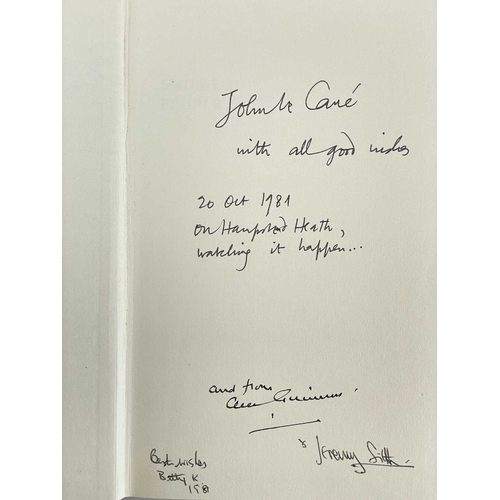 John le Carré
with all good wishes
20 Oct 1981
on Hampstead Heath,
watching it happen...
and from
Alec Guinness
& Jeremy
Best wishes
Betty K
1981